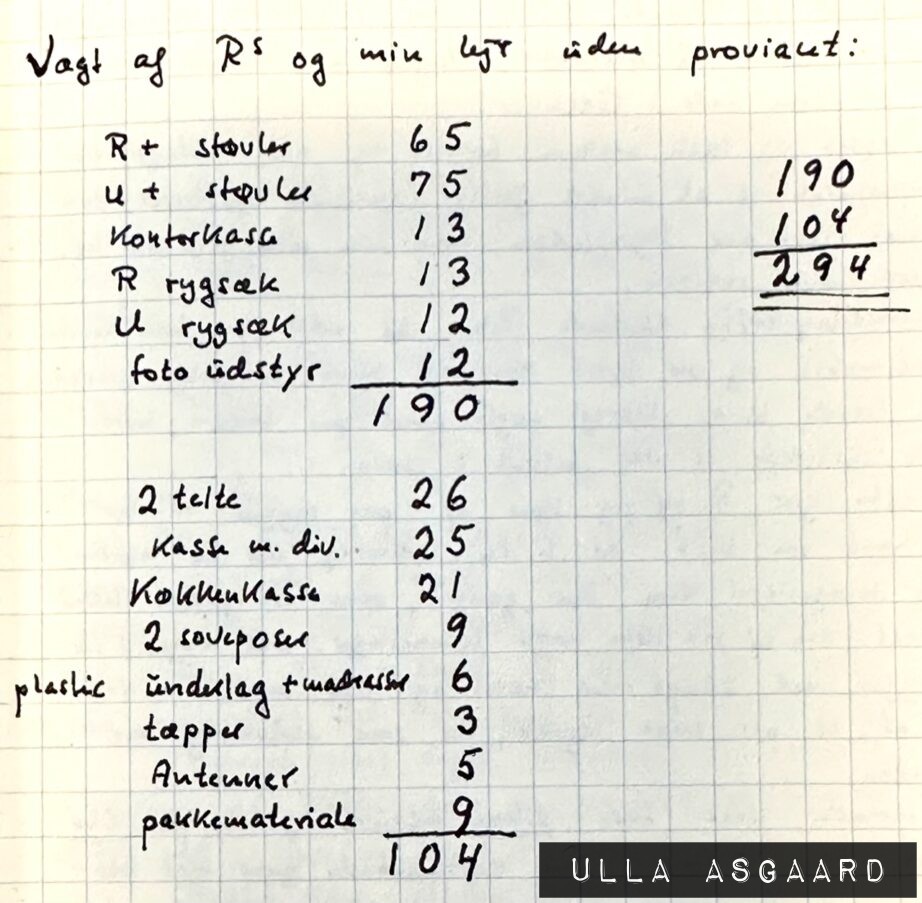 Vægt af Rs og min lejr uden proviant:
R + støvler 65
U + støvler 75
Kontorkasse 13
R rygsæk 13
U rygsæk 12
foto udstyr 12
190
190
104
294
2 telte 26
Kasse m. div. 25
Køkkenkasse 21
2 soveposer 9
plastic underlag + madrasser 6
tæpper 3
Antenner 5
pakkemateriale 9
104
ULLA ASGAARD